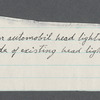 automobil head light
of existing head ligh